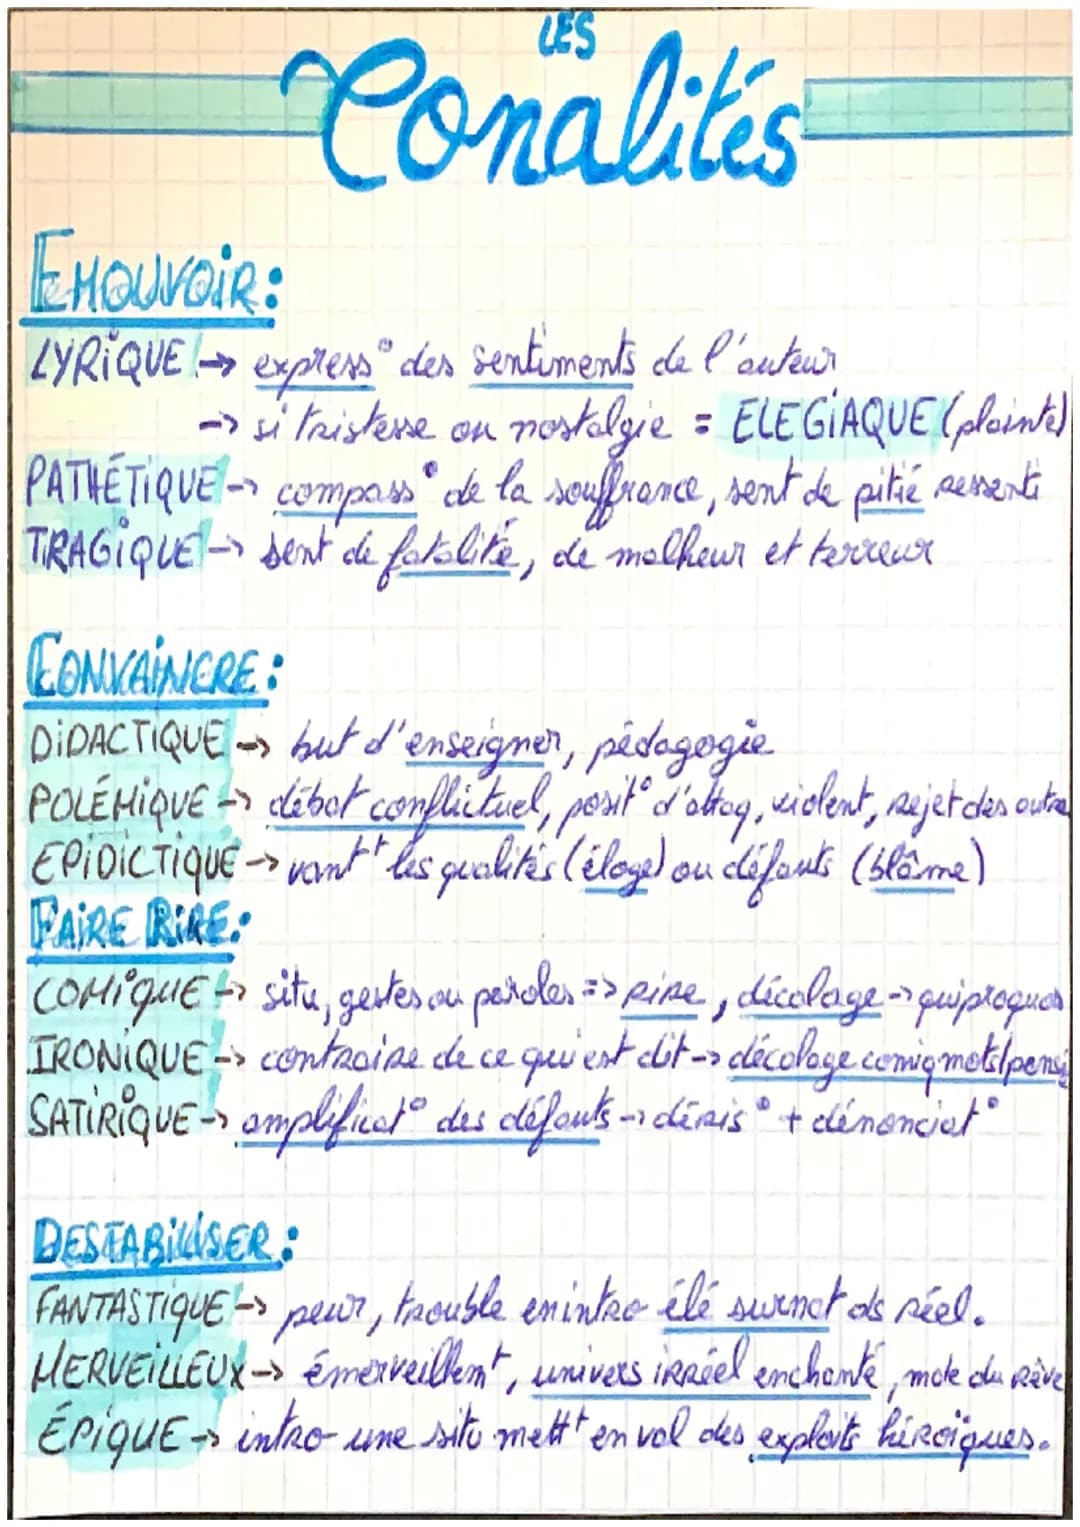 LES
Tonalités
EMOUVOIR:
LYRIQUE → express° des sentiments de l'auteur
→ si tristesse ou nostalgie = ELEGIAQUE (plainte)
PATHÉTIQUE → compass° de la souffrance, sent de pitié ressenti
TRAGIQUE → sent de fatalité, de malheur et terreur
CONVAINCRE:
DIDACTIQUE → but d'enseigner, pédagogie
POLÉMIQUE → débat conflictuel, posit° d'attaq, violent, rejet des autre
EPIDICTIQUE → vantt les qualités (éloge) ou défauts (blâme)
FAIRE RIRE:
COMIQUE → situ, gestes ou paroles => rire, décalage → quiproquos
IRONIQUE → contraire de ce qui est dit → décalage comiq mots/pensé
SATIRIQUE → amplificat° des défauts → déris° + dénonciat°
DESTABILISER:
FANTASTIQUE → peur, trouble en intro élé surnat ds réel.
MERVEILLEUX → émerveillemt, univers irréel enchanté, mde du rêve
ÉPIQUE → intro une situ mettt en val des exploits héroïques.